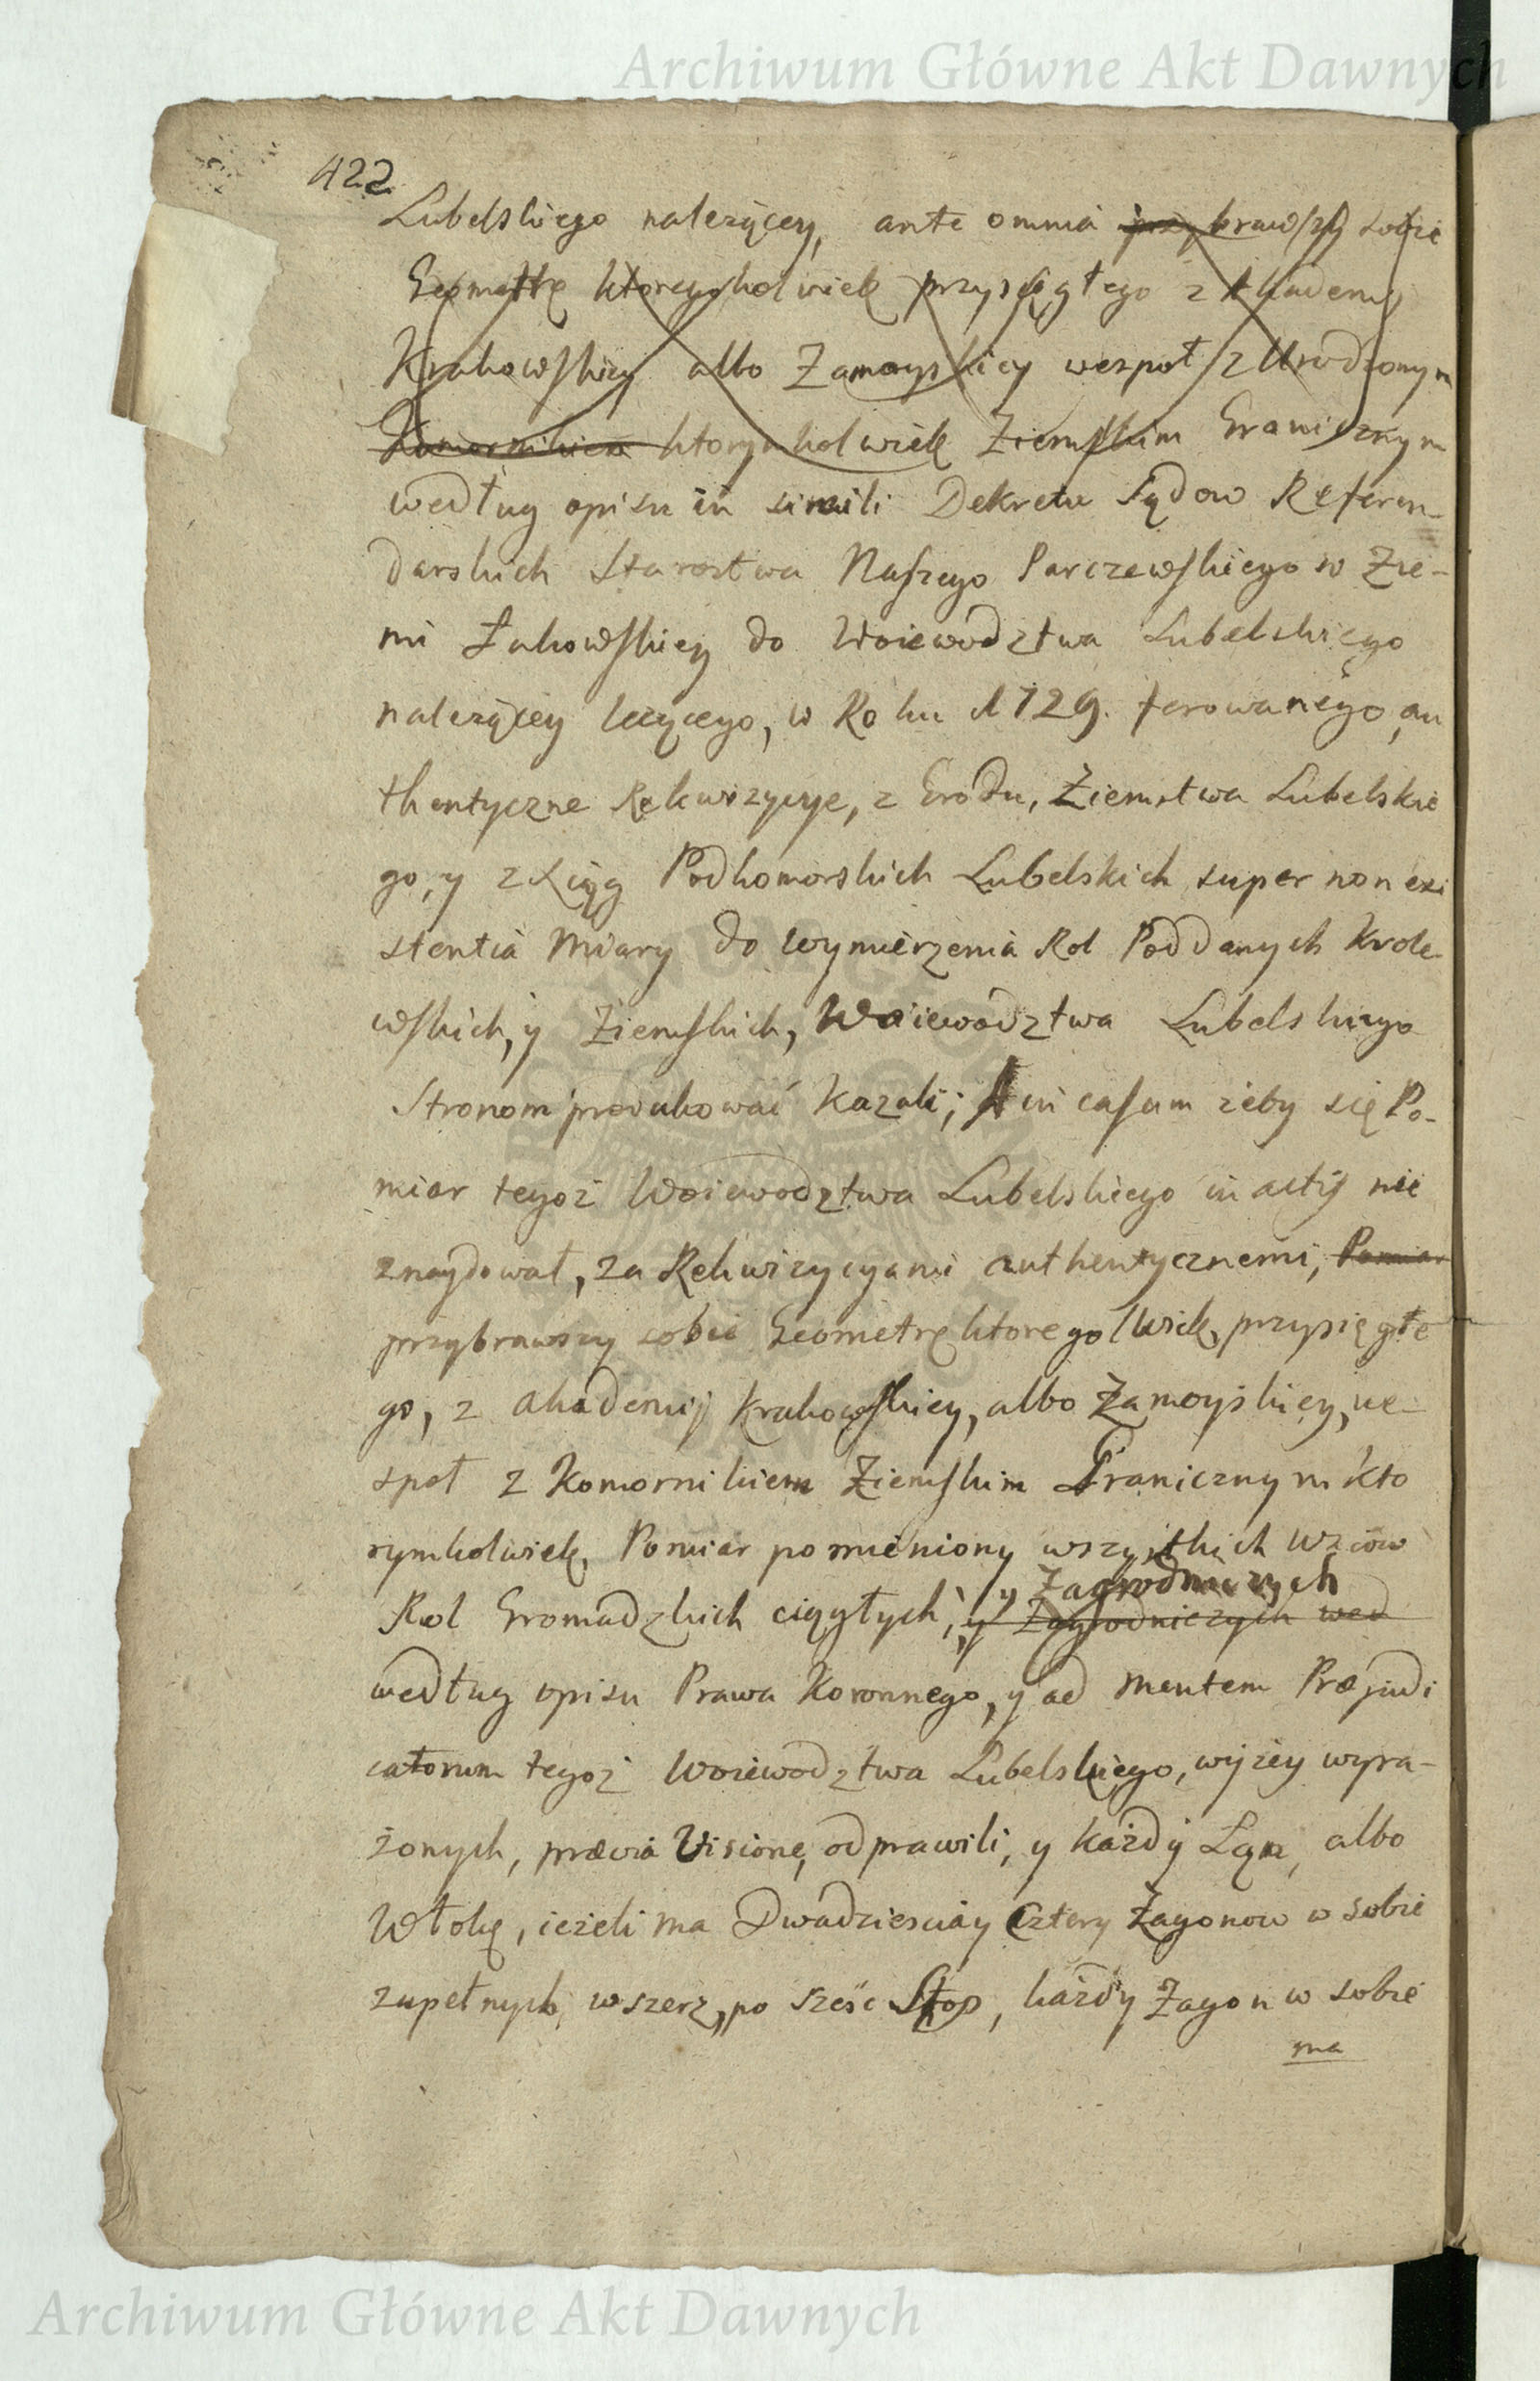 Archiwum Główne Akt Dawnych
422
Lubelskiego należącey, ante omnia przybrawszy sobie
Geometrę ktoregokolwiek przysięgłego z Akademij
Krakowskiey albo Zamoyskiey wespoł z Urodzonym
Komornikiem ktorymkolwiek Ziemskim Granicznym
według opisu in simili Dekretu Sądow Referen-
darskich Starostwa Naszego Parczewskiego w Zie-
mi Łukowskiey do Woiewodztwa Lubelskiego
należącey leżącego, w Roku 1729. ferowanego, au
thentyczne Rekwizycye, z Grodu, Ziemstwa Lubelskie
go, y z Xiąg Podkomorskich Lubelskich super non exi
stentia Miary do wymierzenia Rol Poddanych Krole-
wskich, y Ziemskich, Woiewodztwa Lubelskiego
Stronom produkować kazali; A in casum żeby się Po-
miar tegoż Woiewodztwa Lubelskiego in actis nie
znaydował, za Rekwizycyami authentycznemi, Pomiar
przybrawszy sobie Geometrę ktoregolwiek, przysięgłe
go, z Akademij Krakowskiey, albo Zamoyskiey, we-
społ z Komornikiem Ziemskim Granicznym kto
rymkolwiek, Pomiar pomieniony wszystkich
y Zagrodniczych
Rol Gromadzkich ciągłych, y Zagrodniczych wed
według opisu Prawa Koronnego, y ad mentem Præjudi
catorum tegoż Woiewodztwa Lubelskiego, wyżey wyra-
żonych, prævia Visione, odprawili, y każdy Łan, albo
Włokę, ieżeli ma Dwadzieścia y Cztery Zagonow w sobie
zupełnych, wszerz, po sześć Stop, każdy Zagon w sobie
ma
Archiwum Główne Akt Dawnych